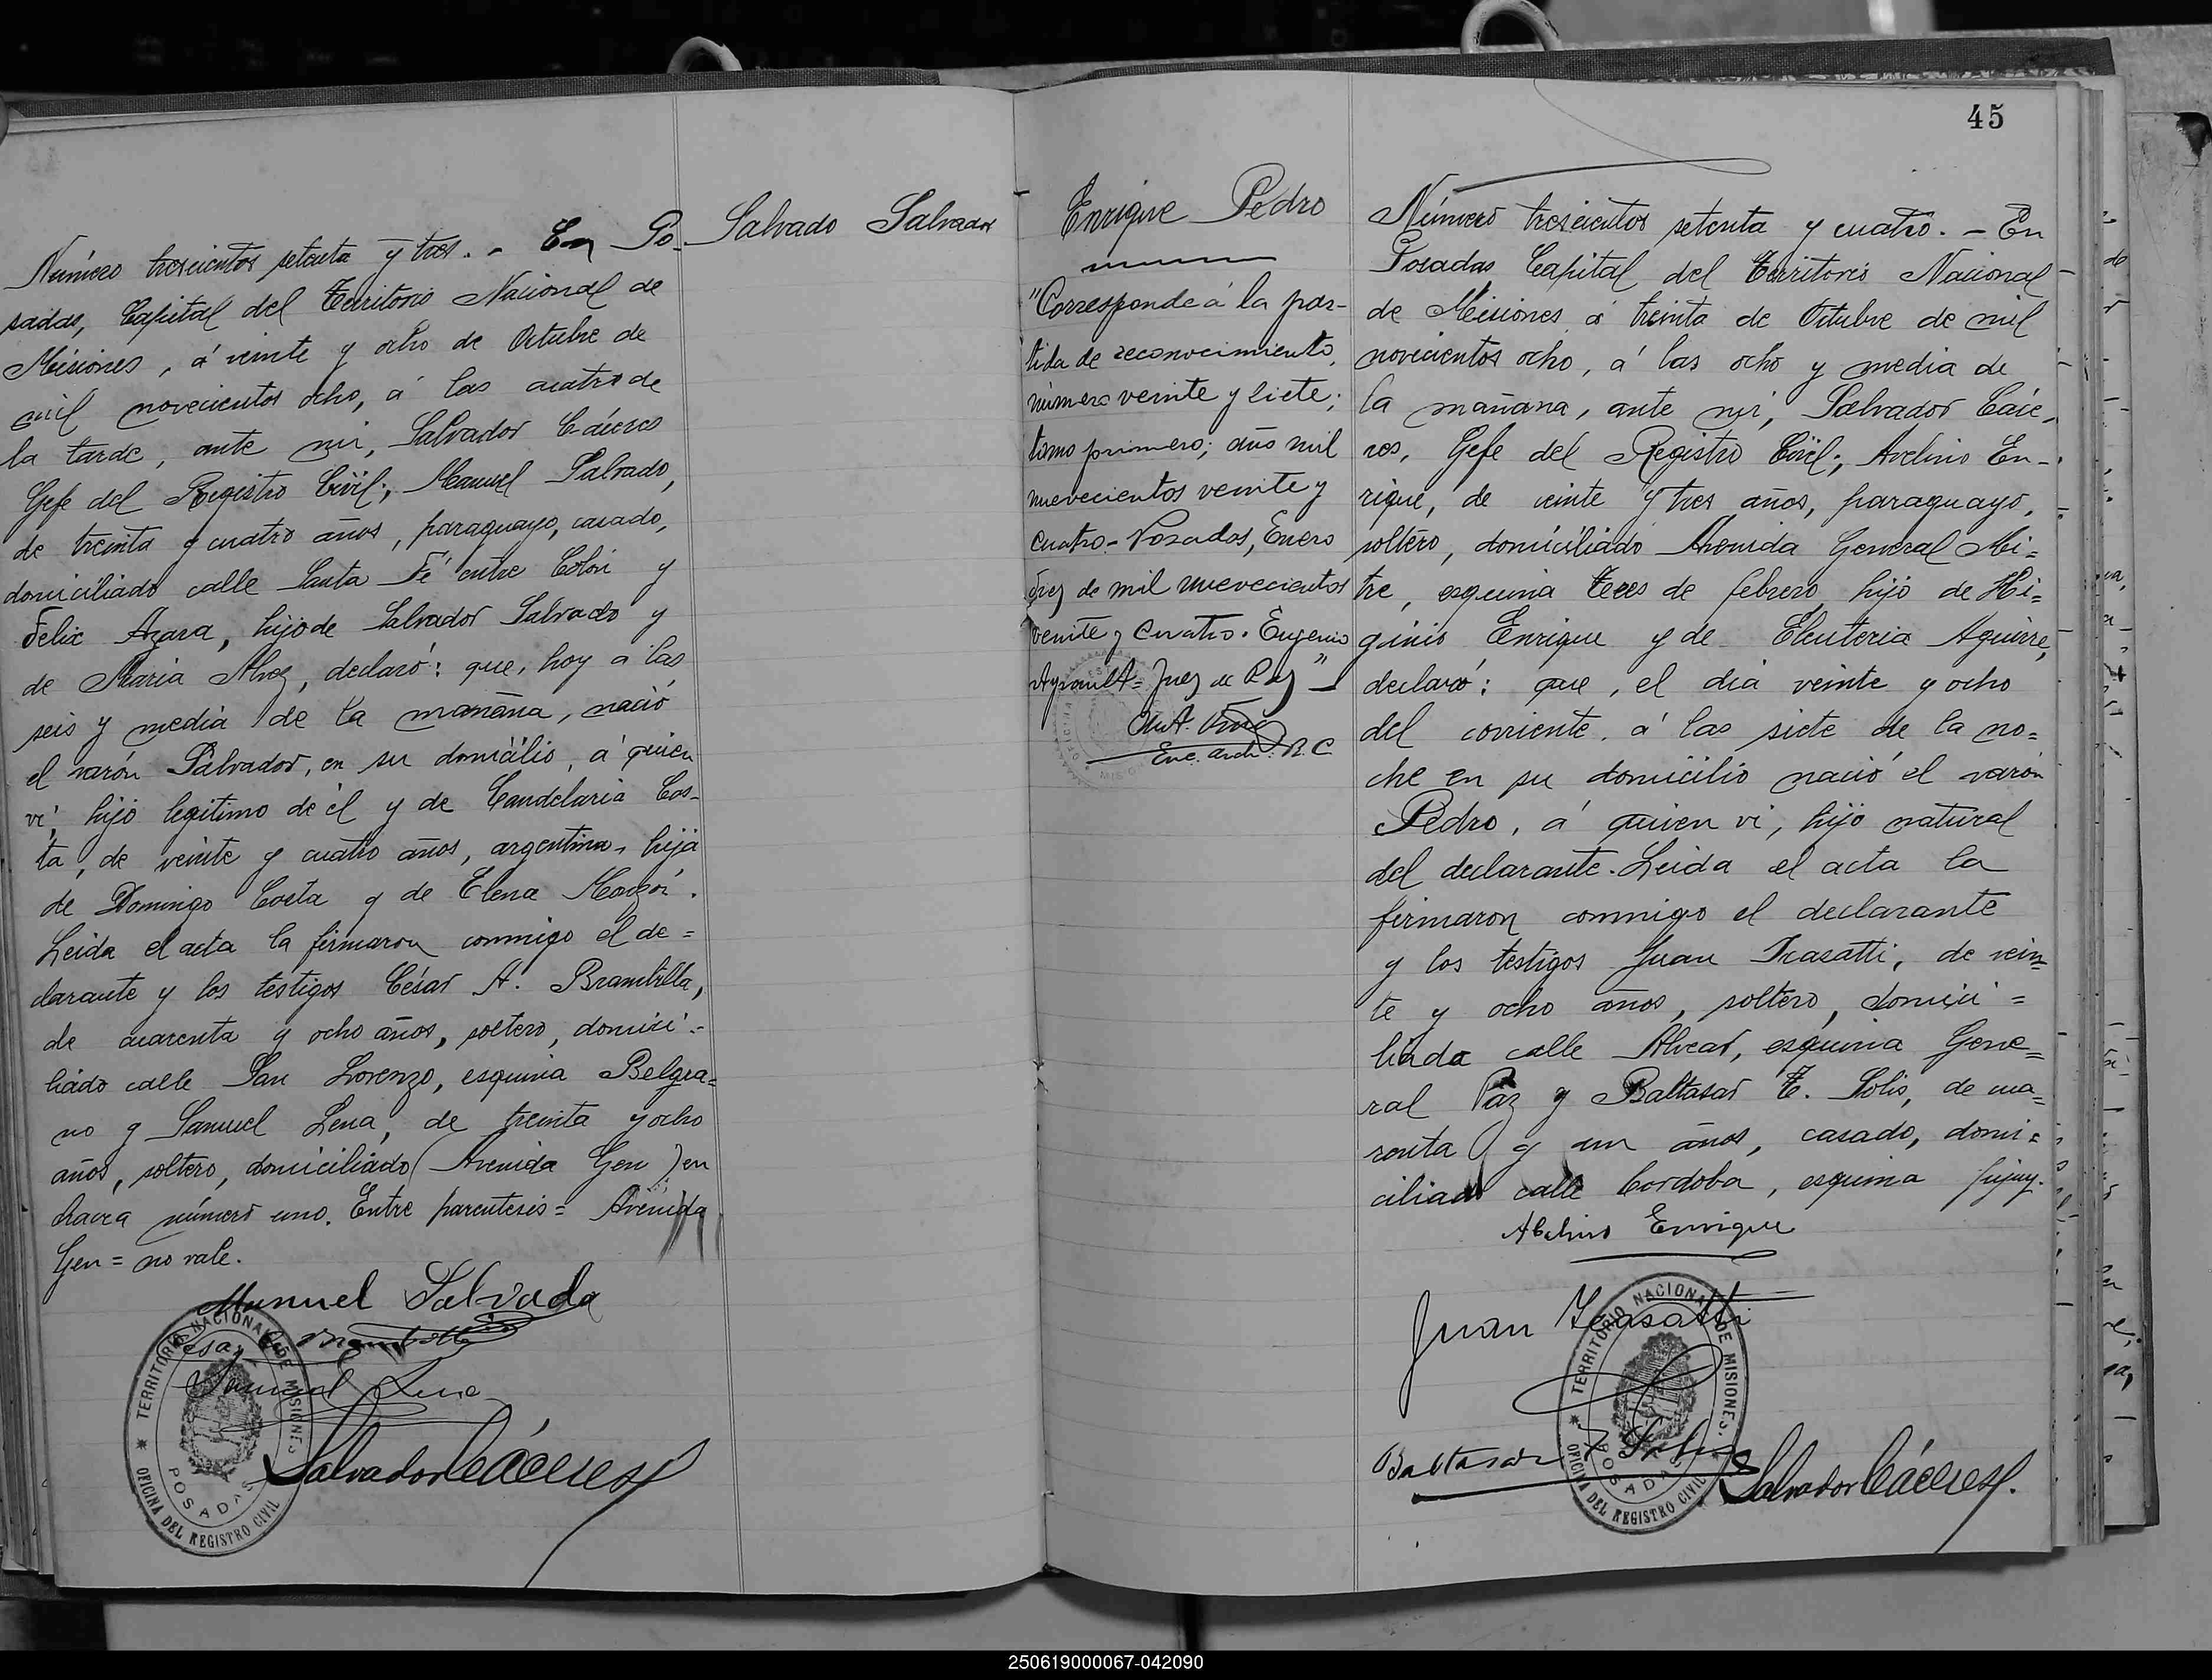 Número trescientos setenta y tres. - En Po-
sadas, Capital del Territorio Nacional de
Misiones, á veinte y ocho de Octubre de
mil novecientos ocho, á las cuatro de
la tarde, ante mi, Salvador Cáceres
Gefe del Registro Civil; Manuel Salvado,
de treinta y cuatro años, paraguayo, casado,
domiciliado calle Santa Fé entre Colón y
Felix Azara, hijo de Salvador Salvado y
de Maria Alvez, declaró: que, hoy a las
seis y media de la mañana, nació
el varón Salvador, en su domicilio, á quien
vi, hijo legitimo de él y de Candelaria Cos-
ta, de veinte y cuatro años, argentina, hija
de Domingo Costa y de Elena
Leida el acta la firmaron conmigo el de=
clarante y los testigos César A. Brambilla,
de cuarenta y ocho años, soltero, domici-
liado calle San Lorenzo, esquina Belgra=
no y Samuel Lena, de treinta y ocho
años, soltero, domiciliado (Avenida Gen) en
chacra número uno. Entre parentesis = Avenida
Gen = no vale.
Manuel Salvado
Cesar Brambilla
Samuel Lena
Salvador Cáceres
TERRITORIO NACIONAL DE MISIONES
POSADAS
OFICINA DEL REGISTRO CIVIL
Salvado Salvador
45
Enrique Pedro
"Corresponde á la par-
tida de reconocimiento,
número veinte y siete;
tomo primero; año mil
nuevecientos veinte y
cuatro - Posadas, Enero
diez de mil nuevecientos
veinte y cuatro. Eugenio
= Juez de Paz"
Enc. arch. R. C
Número trescientos setenta y cuatro. - En
Posadas Capital del Territorio Nacional
de Misiones á treinta de Octubre de mil
novecientos ocho, á las ocho y media de
la mañana, ante mi, Salvador Các-
res, Gefe del Registro Civil; Avelino En-
rique, de veinte y tres años, paraguayo,
soltero, domiciliado Avenida General Mi=
tre, esquina tres de febrero, hijo de Hi=
ginio Enrique y de Eleuteria Aguirre,
declaró: que, el dia veinte y ocho
del corriente, á las siete de la no=
che en su domicilio nació el varón
Pedro, á quien vi, hijo natural
del declarante. Leida el acta la
firmaron conmigo el declarante
y los testigos Juan Trasatti, de vein=
te y ocho años, soltero, domici=
liado calle Alvear, esquina Gene=
ral Paz y Baltasar T. Solis, de cua=
renta y un años, casado, domi=
ciliado calle Cordoba, esquina Jujuy.
Abelino Enrique
Juan Trasatti
Baltasar T Solis
Salvador Cáceres.
TERRITORIO NACIONAL DE MISIONES
POSADAS
OFICINA DEL REGISTRO CIVIL
250619000067-042090